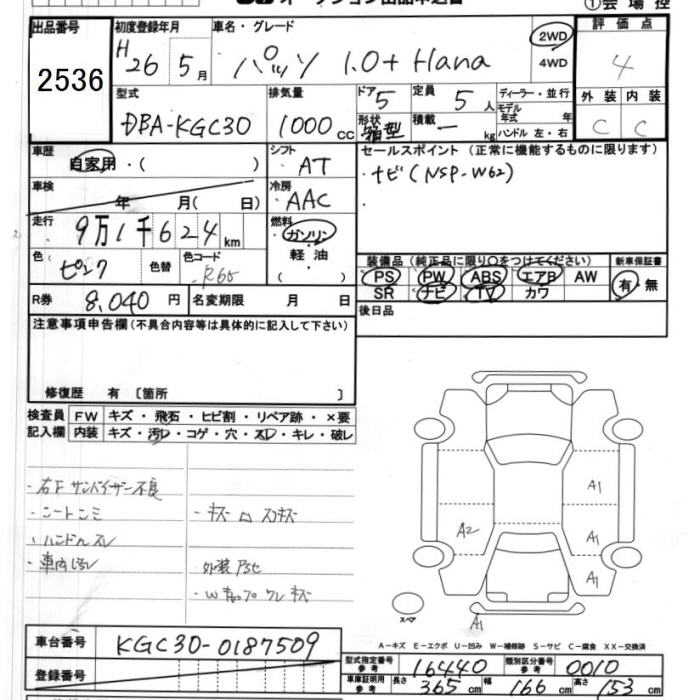 オークション出品申込書
①会場控
出品番号
2536
初度登録年月
H26 5月
車名・グレード
パッソ 1.0+Hana
2WD
4WD
評価点
4
外装 内装
C C
型式
DBA-KGC30
排気量
1000cc
ドア
5
形状
箱型
定員
5人
積載
ー kg
ディーラー・並行
モデル年式 年
ハンドル 左・右
車歴
自家用・( )
シフト
AT
セールスポイント (正常に機能するものに限ります)
・ナビ(NSP-W62)
・
車検
年 月( 日)
冷房
AAC
走行
9万1千624km
燃料
ガソリン
軽油
( )
色
ピンク
色替
色コード
R65
装備品 (純正品に限り○をつけてください)
PS PW ABS エアB AW
SR ナビ TV カワ
新車保証書
有・無
R券 8,040円
名変期限 月 日
後日品
注意事項申告欄(不具合内容等は具体的に記入して下さい)
修復歴 有 〔箇所 〕
検査員記入欄
FW キズ・飛石・ヒビ割・リペア跡・×要
内装 キズ・汚レ・コゲ・穴・スレ・キレ・破レ
・右F サンバイザー不良
・シートシミ
・ハンドルスレ
・車内汚レ
・キズ
外装
キズ
A2
A1
A1
A1
A1
スペア
A-キズ E-エクボ U-凹み W-補修跡 S-サビ C-腐食 XX-交換済
車台番号
KGC30-0187509
登録番号
型式指定番号 参考
16440
類別区分番号 参考
0010
車庫証明用 参考
長さ 365cm 幅 166cm 高さ 153cm